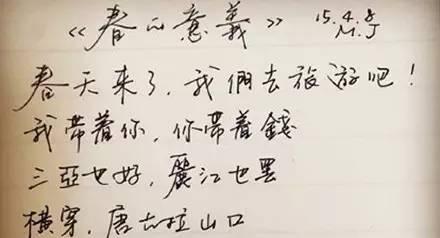 《春的意義》 15.4.8
M.J
春天来了,我們去旅游吧!
我带着你,你带着錢
三亞也好,麗江也罢
橫穿,唐古拉山口